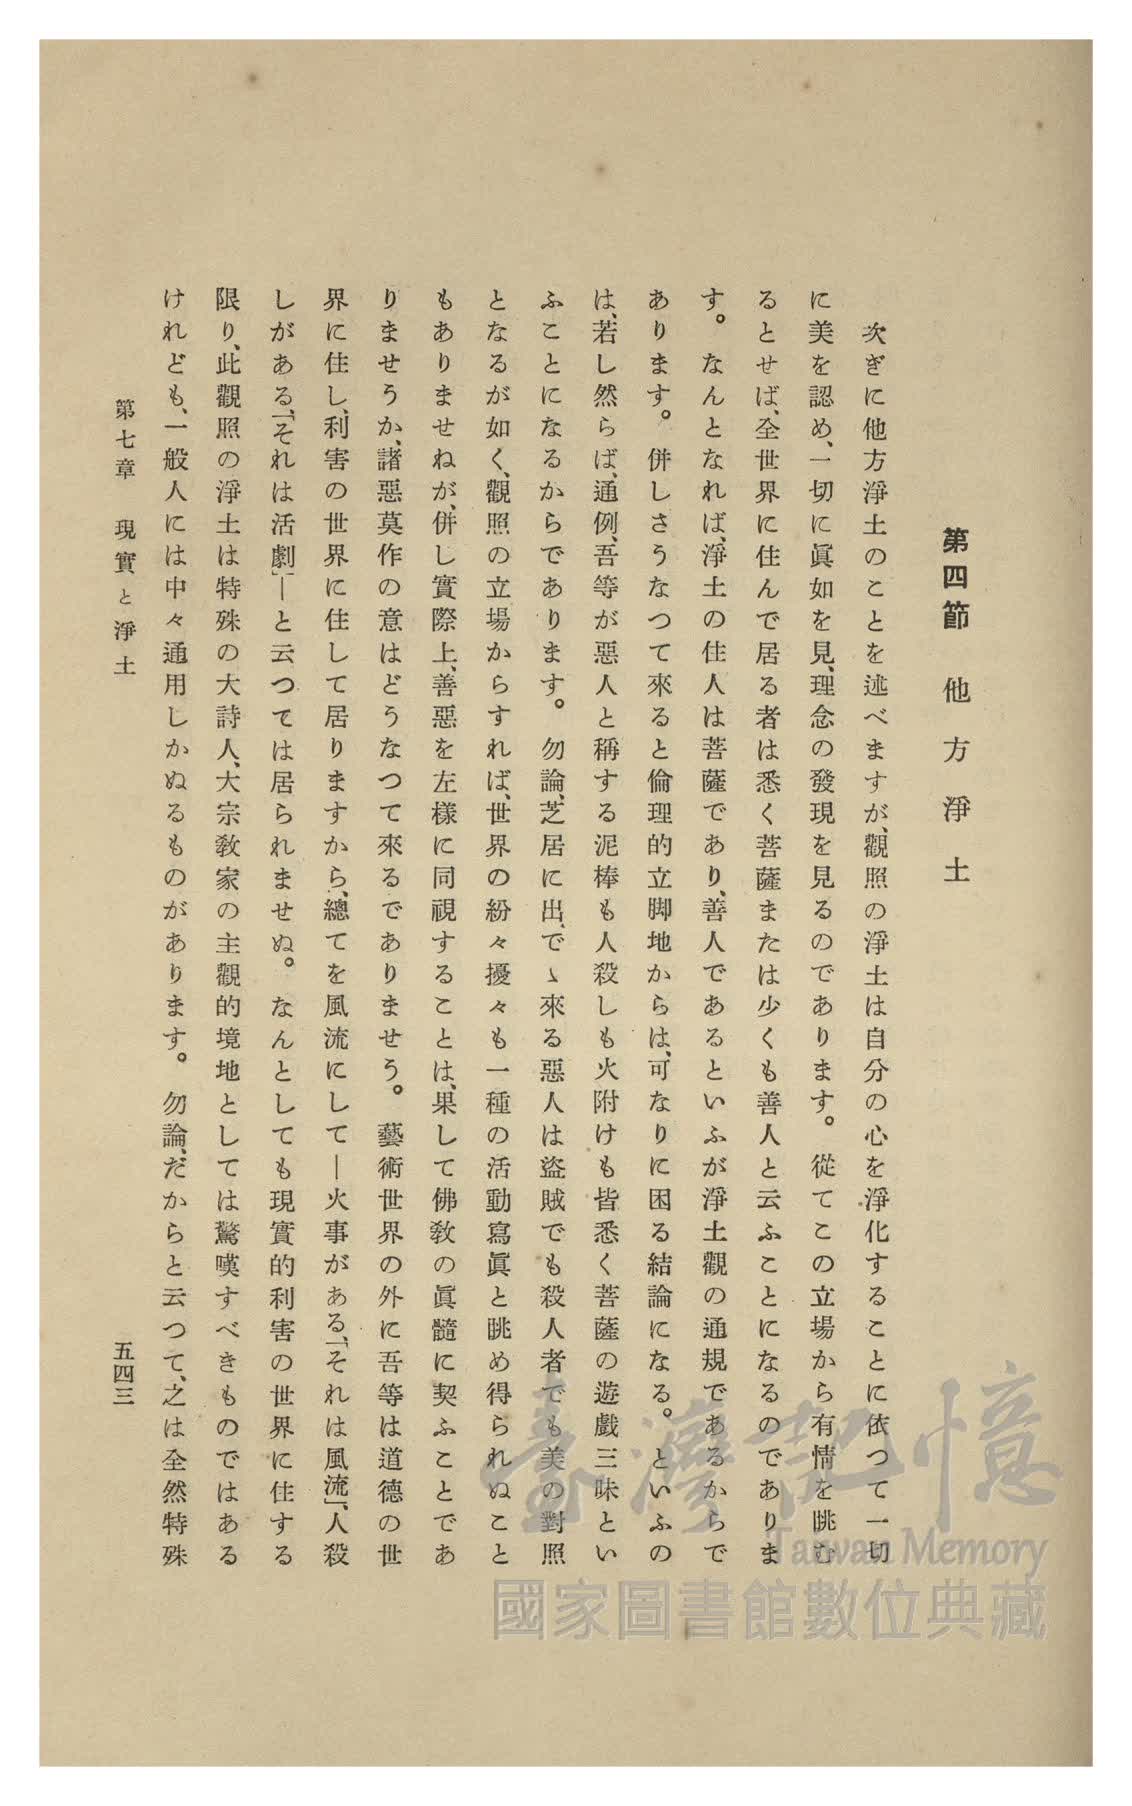 第四節　他方淨土
次ぎに他方淨土のことを述べますが、觀照の淨土は自分の心を淨化することに依つて一切
に美を認め、一切に眞如を見、理念の發現を見るのであります。從てこの立場から有情を眺む
るとせば、全世界に住んで居る者は悉く菩薩または少くも善人と云ふことになるのでありま
す。なんとなれば、淨土の住人は菩薩であり、善人であるといふが淨土觀の通規であるからで
あります。併しさうなつて來ると倫理的立脚地からは、可なりに困る結論になる。といふの
は、若し然らば、通例、吾等が惡人と稱する泥棒も人殺しも火附けも皆悉く菩薩の遊戲三昧とい
ふことになるからであります。勿論、芝居に出、でゝ來る惡人は盜賊でも殺人者でも美の對照
となるが如く、觀照の立場からすれば、世界の紛々擾々も一種の活動寫眞と眺め得られぬこと
もありませねが、併し實際上、善惡を左樣に同視することは、果して佛教の眞髓に契ふことであ
りませうか、諸惡莫作の意はどうなつて來るでありませう。藝術世界の外に吾等は道德の世
界に住し、利害の世界に住して居りますから、總てを風流にして―火事がある、「それは風流」、人殺
しがある、「それは活劇」―と云つては居られませぬ。なんとしても現實的利害の世界に住する
限り、此觀照の淨土は特殊の大詩人、大宗教家の主觀的境地としては驚嘆すべきものではある
けれども、一般人には中々通用しかぬるものがあります。勿論、だからと云つて、之は全然特殊
第七章　現實と淨土　五四三
臺灣記憶
Taiwan Memory
國家圖書館數位典藏